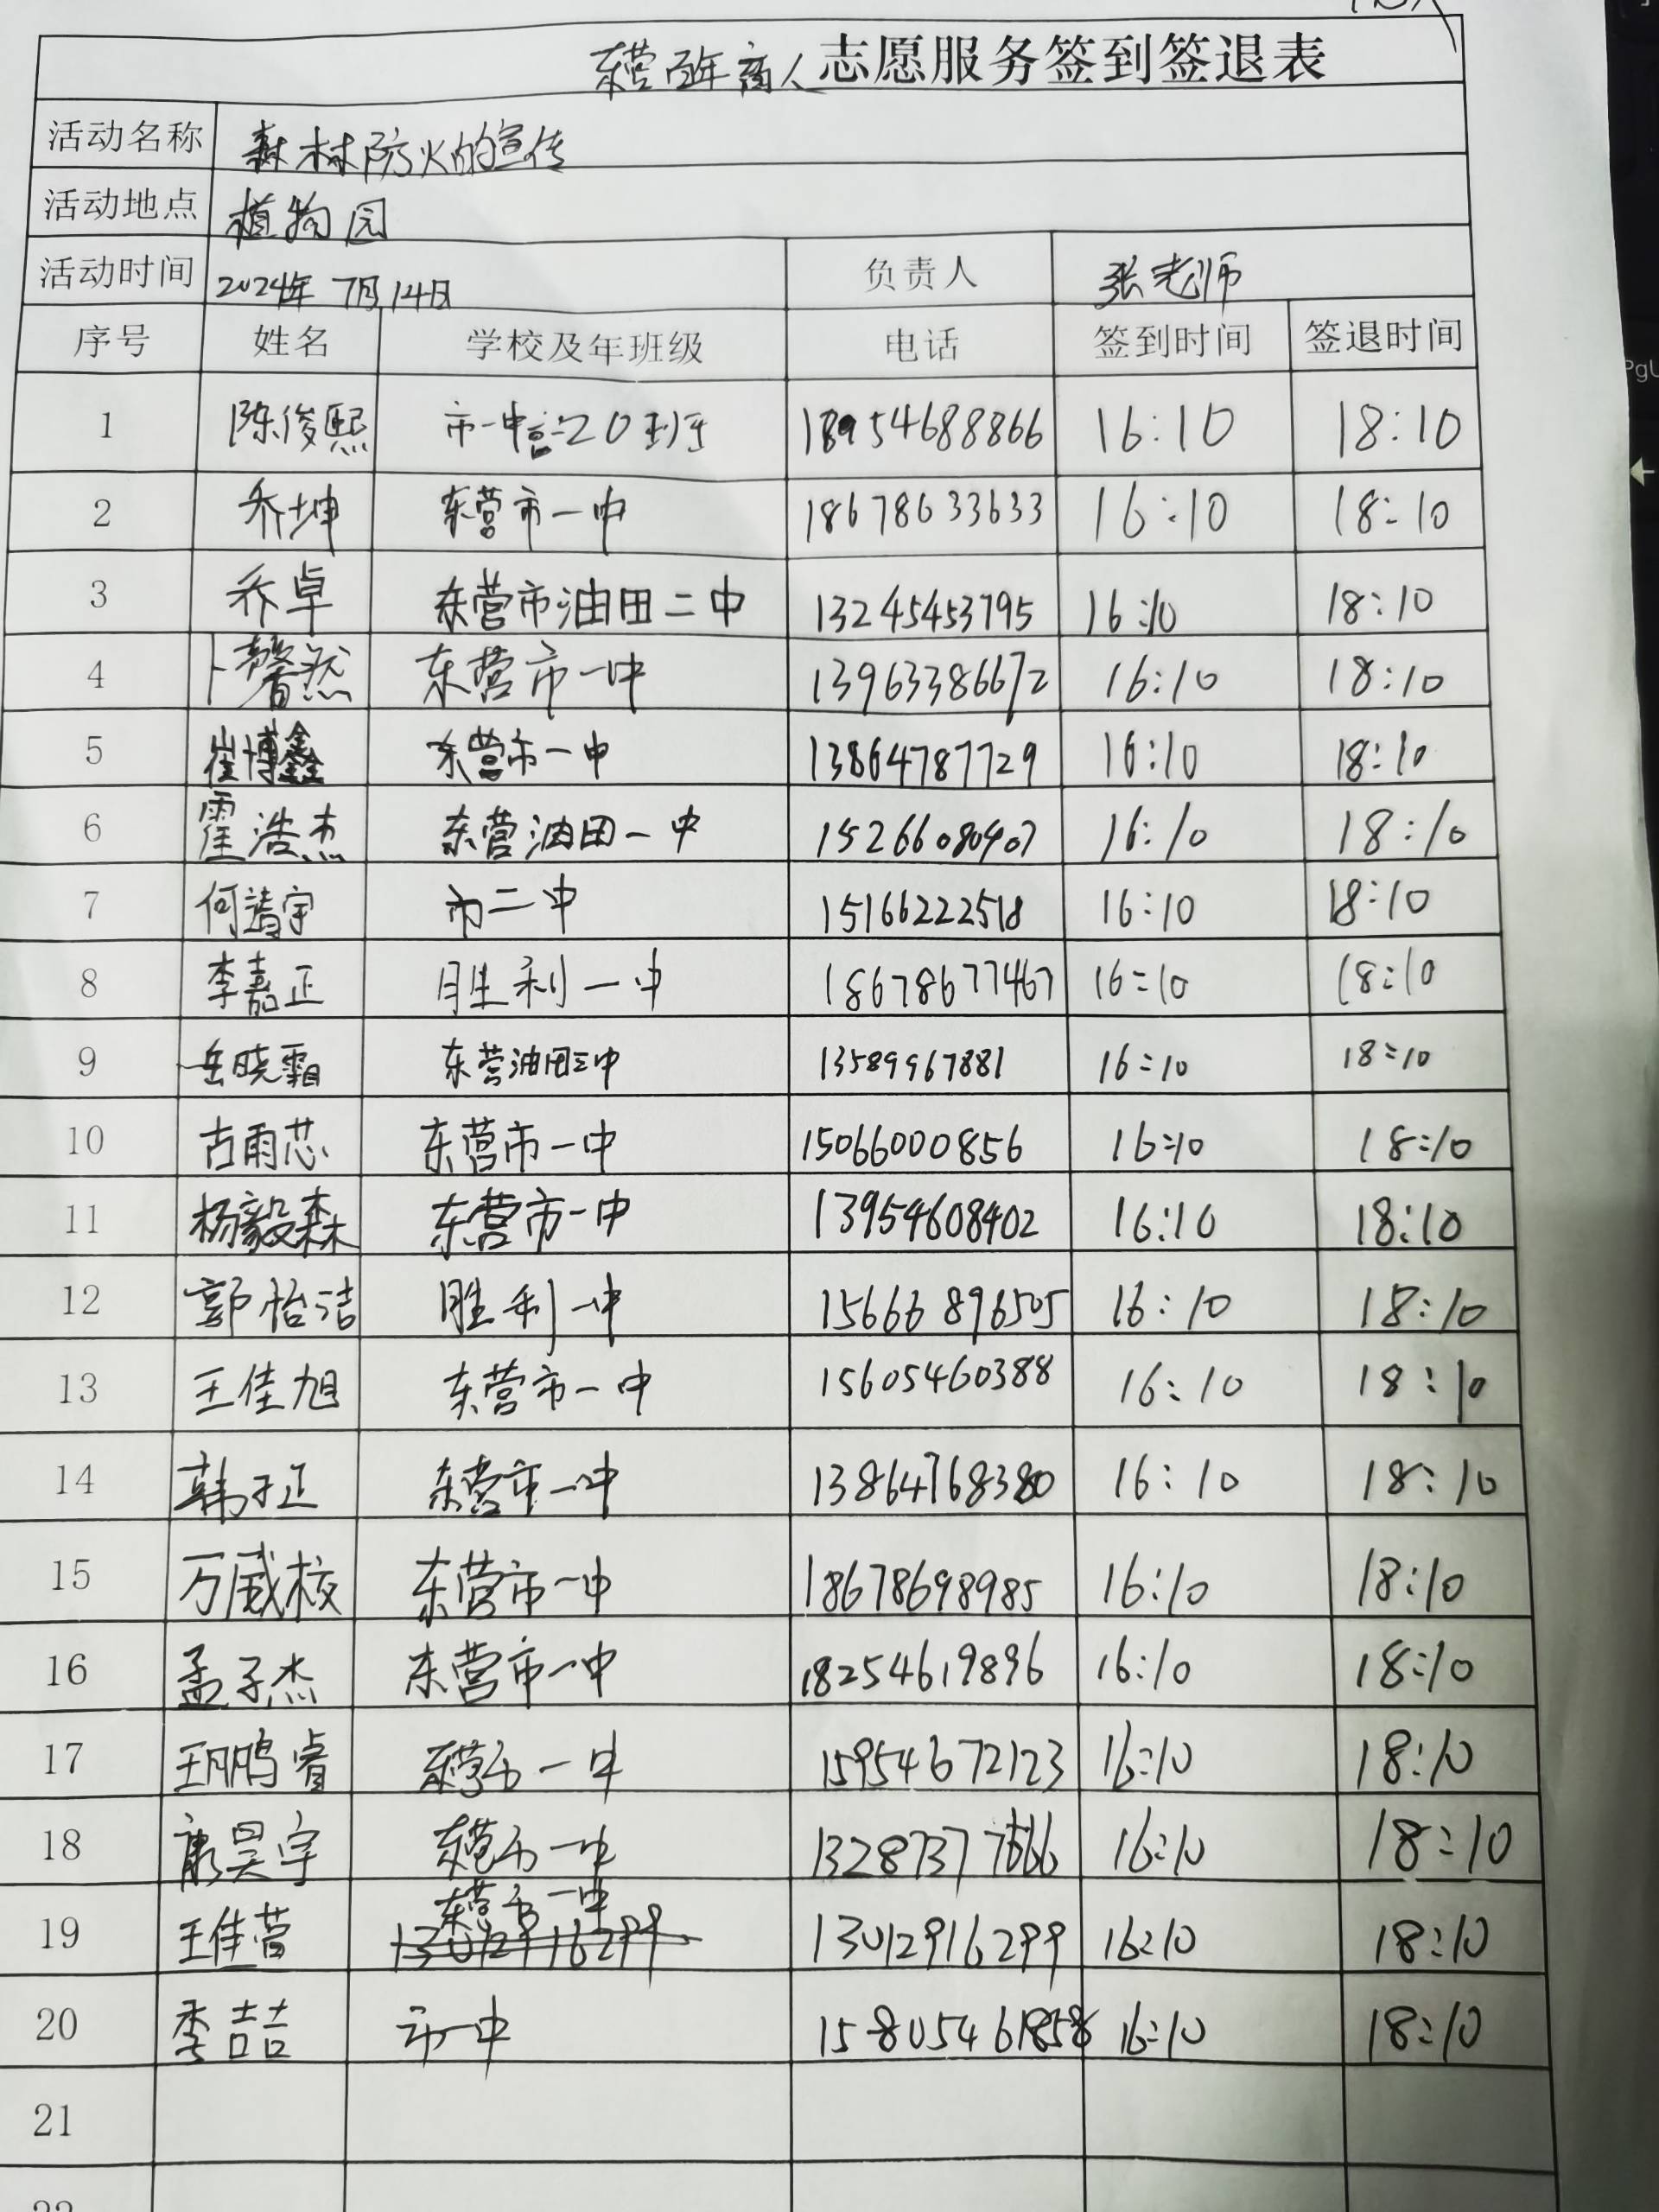 东营百年商人志愿服务签到签退表
活动名称 森林防火的宣传
活动地点 植物园
活动时间 2024年7月14日 负责人 张老师
序号 姓名 学校及年班级 电话 签到时间 签退时间
1 陈俊熙 市一中高二20班 18954688866 16:10 18:10
2 乔坤 东营市一中 18678633633 16:10 18:10
3 乔卓 东营市油田二中 13245453795 16:10 18:10
4 卜馨然 东营市一中 13963386672 16:10 18:10
5 崔博鑫 东营市一中 13864787729 16:10 18:10
6 霍浩杰 东营油田一中 15266080407 16:10 18:10
7 何靖宇 市二中 15166222518 16:10 18:10
8 李嘉正 胜利一中 18678677467 16:10 18:10
9 岳晓霜 东营油田三中 13589967881 16:10 18:10
10 古雨芯 东营市一中 15066000856 16:10 18:10
11 杨毅森 东营市一中 13954608402 16:10 18:10
12 郭怡洁 胜利一中 15666896505 16:10 18:10
13 王佳旭 东营市一中 15605460388 16:10 18:10
14 韩子正 东营市一中 13864768380 16:10 18:10
15 万威核 东营市一中 18678698985 16:10 18:10
16 孟子杰 东营市一中 18254619896 16:10 18:10
17 王鹏睿 东营市一中 15954672123 16:10 18:10
18 康昊宇 东营市一中 16:10 18:10
19 王佳营 东营市一中 13012916299 13012916299 16:10 18:10
20 李喆 市一中 15805461858 16:10 18:10
21
22
PgU